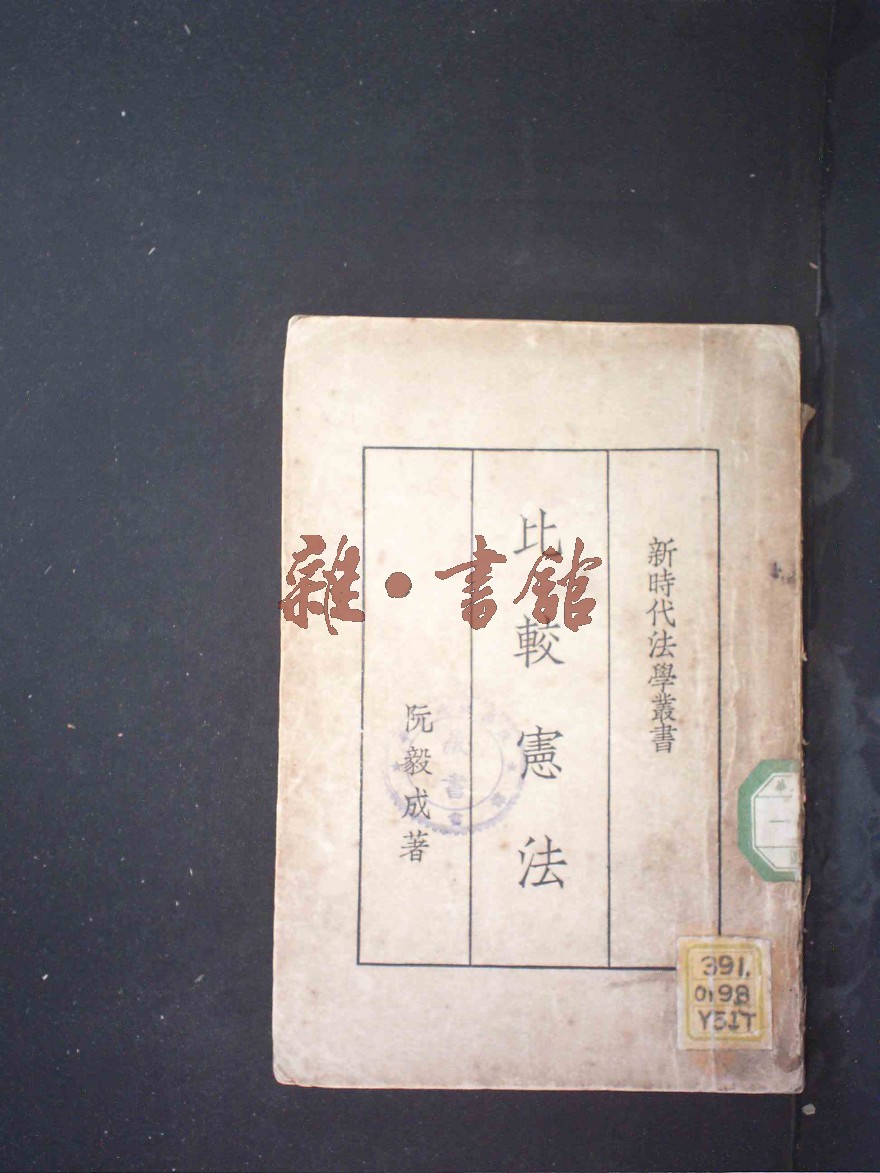 新時代法學叢書
比較憲法
阮毅成著
雜·書館
391.
0198
Y51T